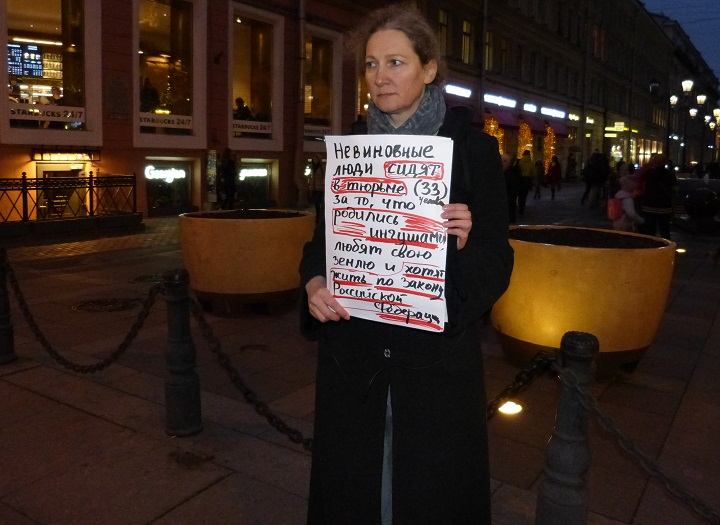 STARBUCKS
STARBUCKS 24/7
STARBUCKS 24/7
24/7
Невиновные
люди сидят
в тюрьме (33)
человека
за то, что
родились
ингушами,
любят свою
землю и хотят
жить по закону
Российской
Федерации